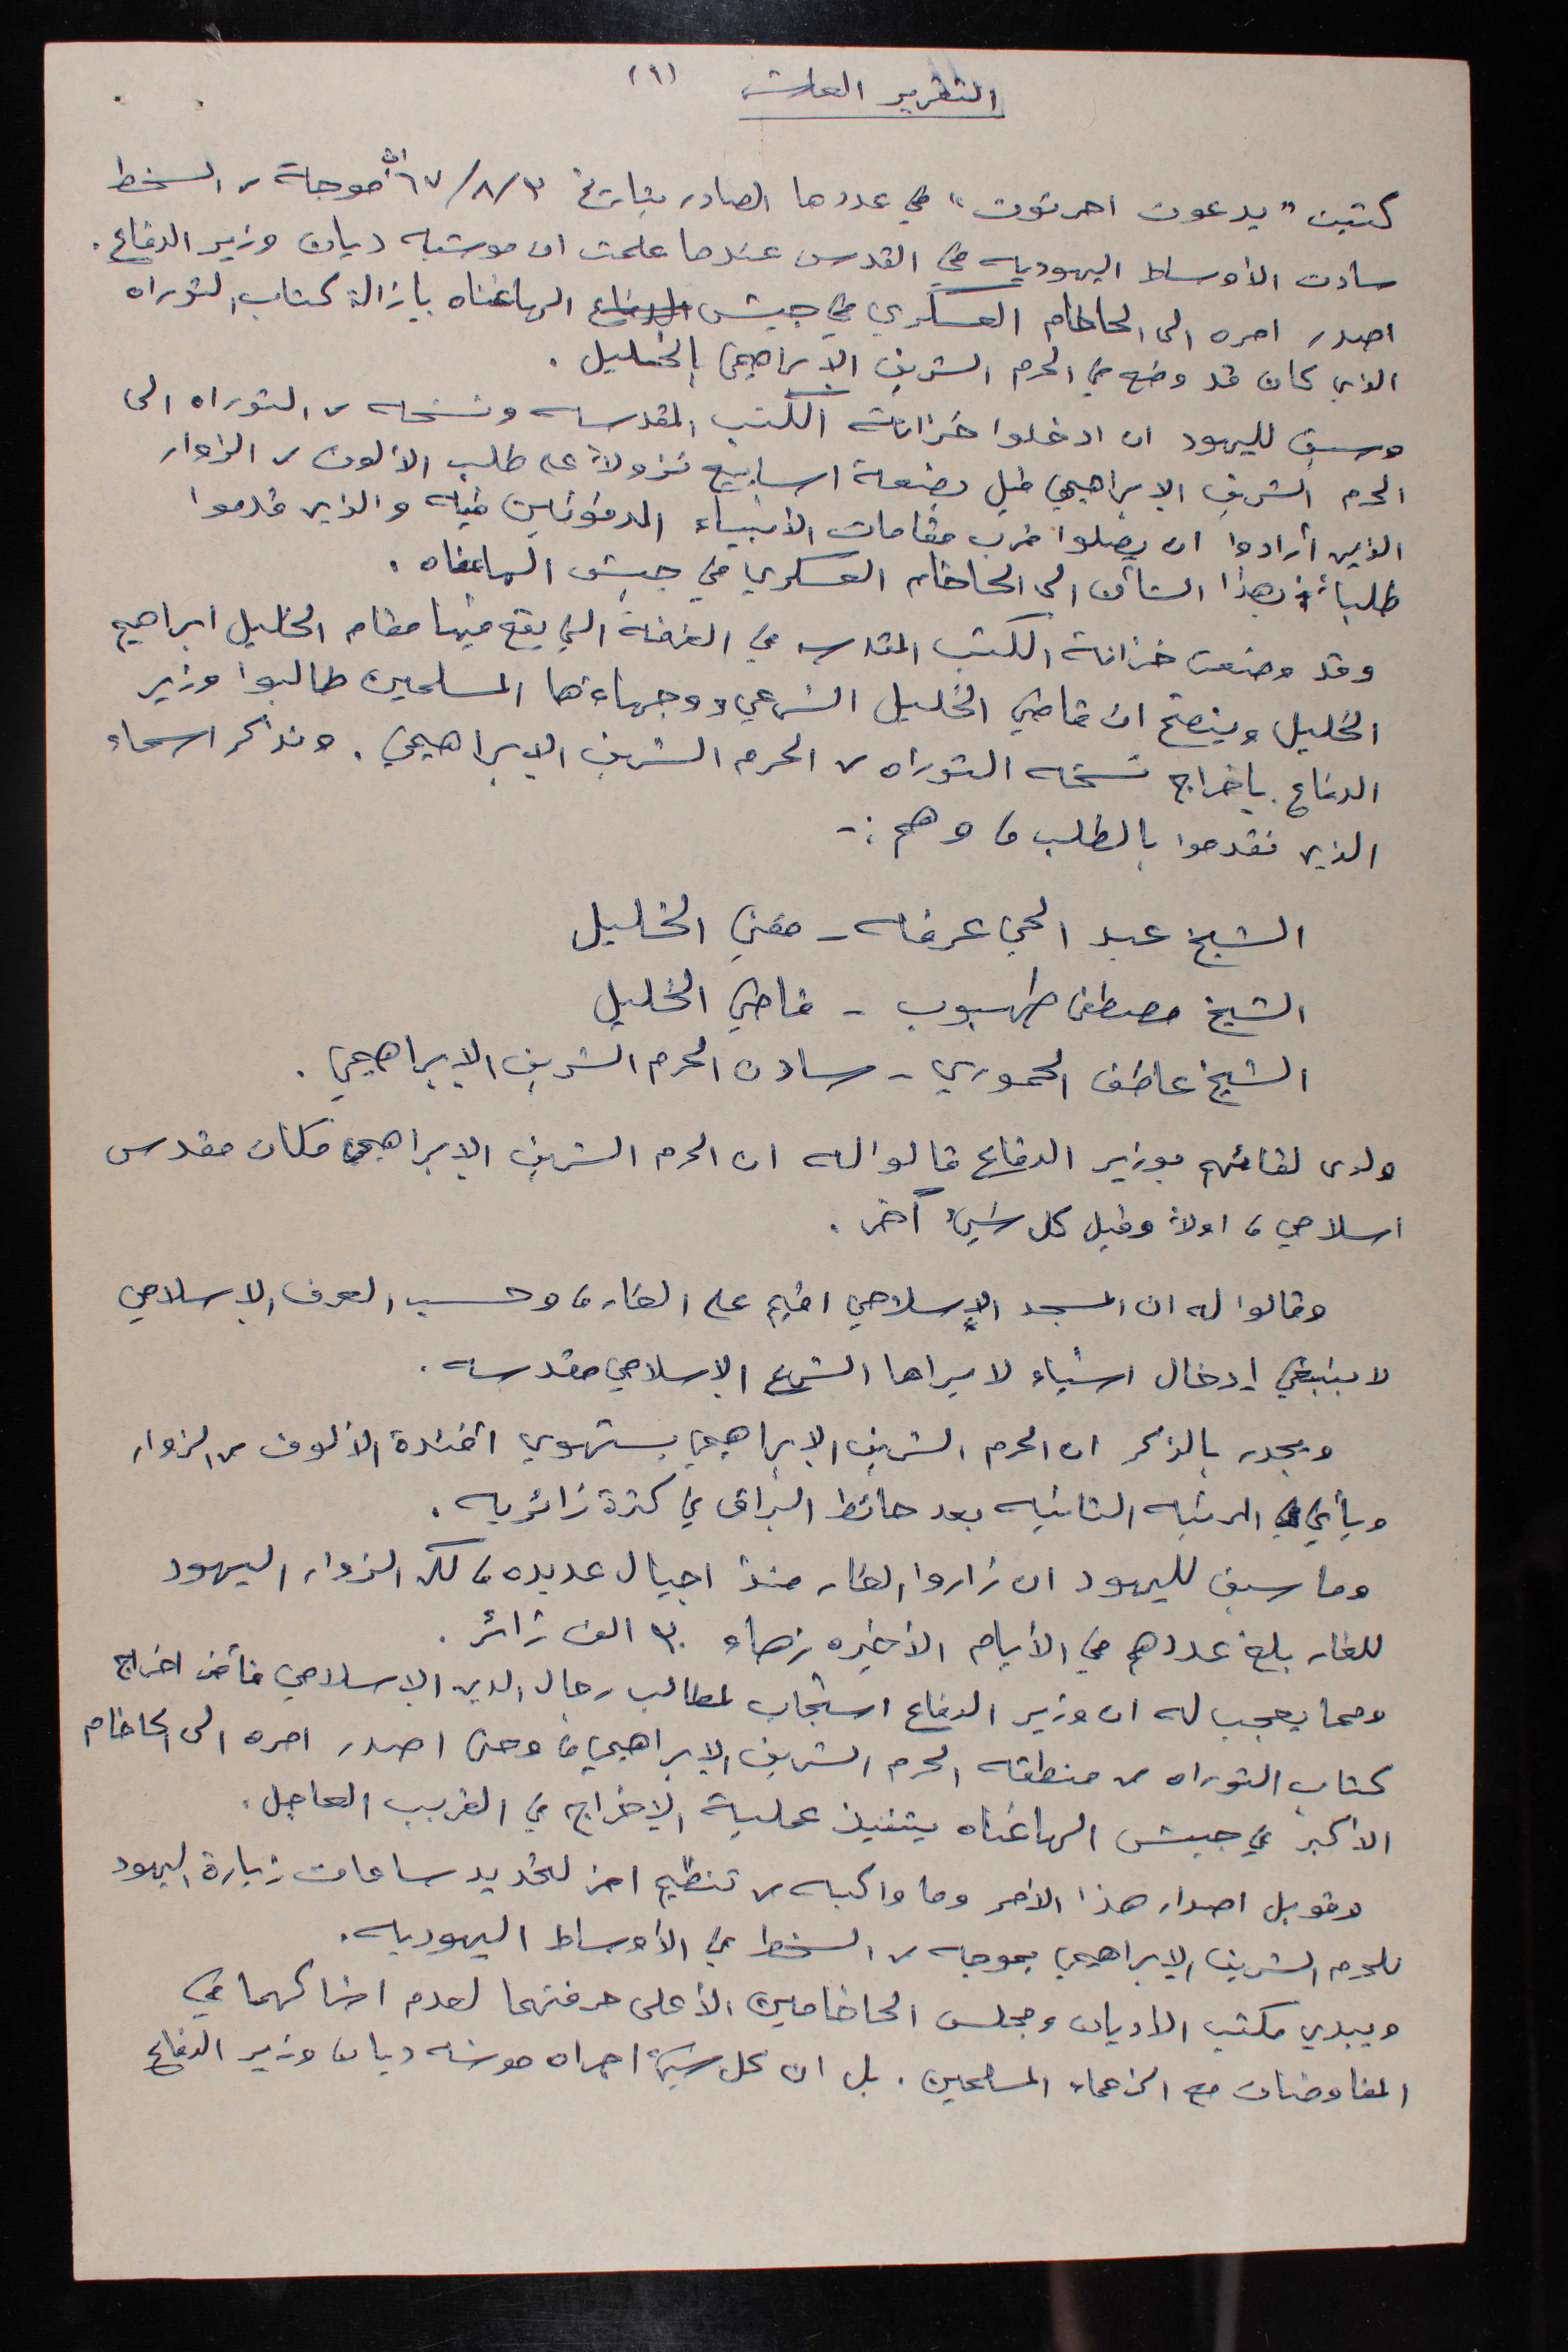 التقرير العاشر (١)
كتبت "يدعوت احرنوت" في عددها الصادر بتاريخ ٦٧/٨/٣ ان موجة من السخط
سادت الأوساط اليهوديه في القدس عندما علمت ان موشيه ديان وزير الدفاع .
اصدر امره الى الحاخام العسكري في جيش الهاغناه بازالة كتاب التوراه
الذي كان قد وضع في الحرم الشريف الإبراهيمي بالخليل .
وسبق لليهود ان ادخلوا خزانة الكتب المقدسه ونسخه من التوراه الى
الحرم الشريف الإبراهيمي قبل بضعة اسابيع نزولاً على طلب الألوف من الزوار
الذين أرادوا ان يصلوا قرب مقامات الأنبياء المدفونين فيه والذين قدموا
طلباً بهذا الشأن الى الحاخام العسكري في جيش الهاغناه .
وقد وضعت خزانة الكتب المقدسه في الغرفة التي يقع فيها مقام الخليل ابراهيم
الخليل ويتضح ان قاضي الخليل الشرعي ووجهاءها المسلمين طالبوا وزير
الدفاع باخراج نسخه التوراه من الحرم الشريف الإبراهيمي . ونذكر اسماء
الذين تقدموا بالطلب ، وهم :-
الشيخ عبد الحي عرفه - مفتي الخليل
الشيخ مصطفى طهبوب - قاضي الخليل
الشيخ عاطف الحموري - سادن الحرم الشريف الإبراهيمي .
ولدى لقائهم بوزير الدفاع قالوا له ان الحرم الشريف الإبراهيمي مكان مقدس
اسلامي ، اولاً وقبل كل شيء آخر .
وقالوا له ان المسجد الإسلامي اقيم على الغار ، وحسب العرف الإسلامي
لا ينبغي إدخال اشياء لا يراها الشرع الإسلامي مقدسه .
ويجدر بالذكر ان الحرم الشريف الإبراهيمي يستهوي افئدة الألوف من الزوار
ويأتي في المرتبه الثانيه بعد حائط البراق في كثرة زائريه .
وما سبق لليهود ان زاروا الغار منذ اجيال عديده ، لكن الزوار اليهود
للغار بلغ عددهم في الأيام الأخيره زهاء ٣٠ الف زائر .
ومما يعجب له ان وزير الدفاع استجاب لمطالب رجال الدين الإسلامي فأمر اخراج
كتاب التوراه من منطقه الحرم الشريف الإبراهيمي ، وحتى اصدر امره الى الحاخام
الأكبر في جيش الهاغناه بتنفيذ عملية الإخراج في القريب العاجل .
وقوبل اصدار هذا الأمر وما واكبه من تنظيم امر لتحديد ساعات زيارة اليهود
للحرم الشريف الإبراهيمي بموجه من السخط في الأوساط اليهوديه .
ويبدي مكتب الاديان ومجلس الحاخامين الأعلى حرقتهما لعدم اشراكهما في
المفاوضات مع الزعماء المسلمين . بل ان كل شيء اجراه موشه ديان وزير الدفاع